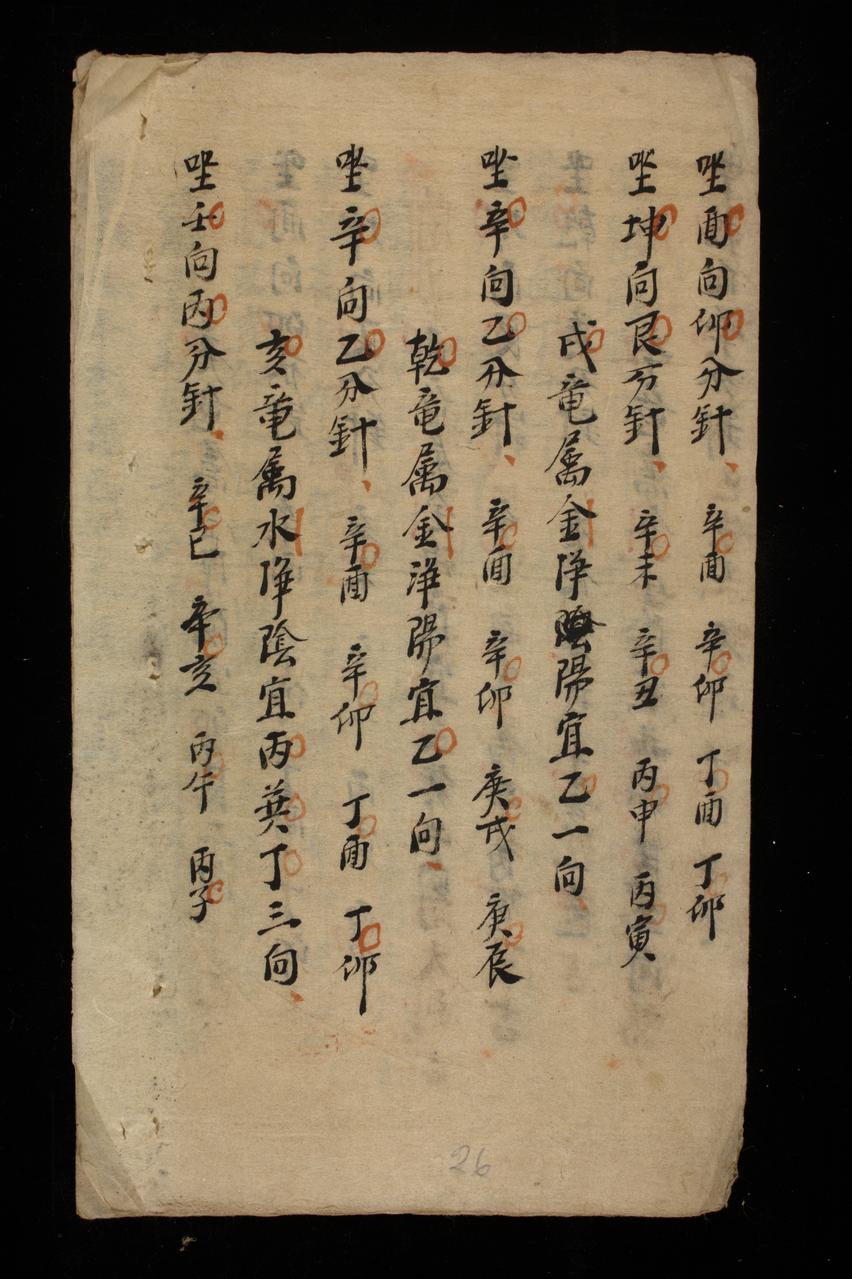 坐酉向卯分針、辛酉 辛卯 丁酉 丁卯
坐坤向艮分針、辛未 辛丑 丙申 丙寅
戌竜属金淨陽宜乙一向
坐辛向乙分針、辛酉 辛卯 庚戌 庚辰
乾竜属金淨陽宜乙一向
坐辛向乙分針、辛酉 辛卯 丁酉 丁卯
亥竜属水淨陰宜丙巽丁三向
坐壬向丙分針、辛巳 辛亥 丙午 丙子
26